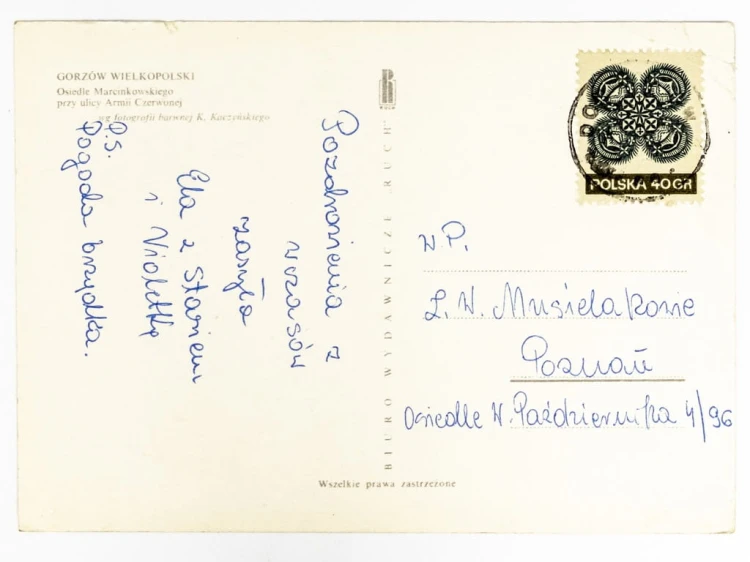 GORZÓW WIELKOPOLSKI
Osiedle Marcinkowskiego
przy ulicy Armii Czerwonej
wg fotografii barwnej K. Kaczyńskiego
Pozdrowienia z
wczasów
zasyła
Ela z Stasiem
i Violetką
P.S.
Pogoda brzydka.
BIURO WYDAWNICZE „RUCH”
POLSKA 40 GR
W.P.
Z. W. Musielakowie
Poznań
Osiedle W. Października 4/96
Wszelkie prawa zastrzeżone